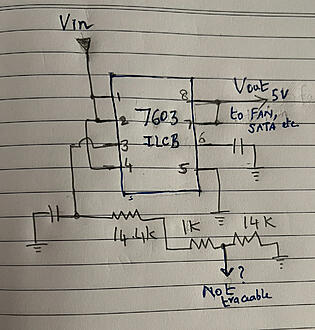 Vin
1
8
Vout
5V
2
7603
7
to FAN,
SATA etc
3
ILCB
6
4
5
14.4k
1K
14K
?
Not
traceable